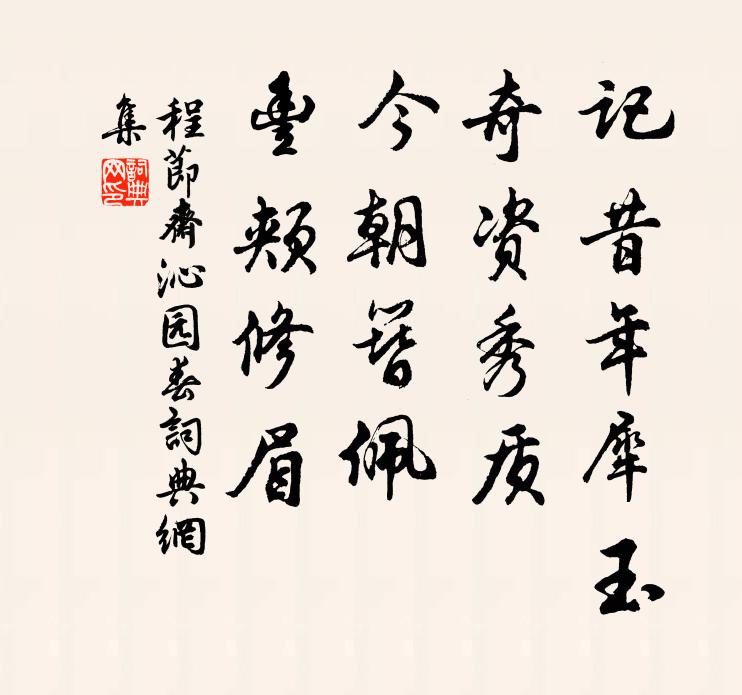 记昔年犀玉
奇资秀质
今朝簪佩
豊颊修眉
程節齋沁园春詞典網
集
詞典
网印